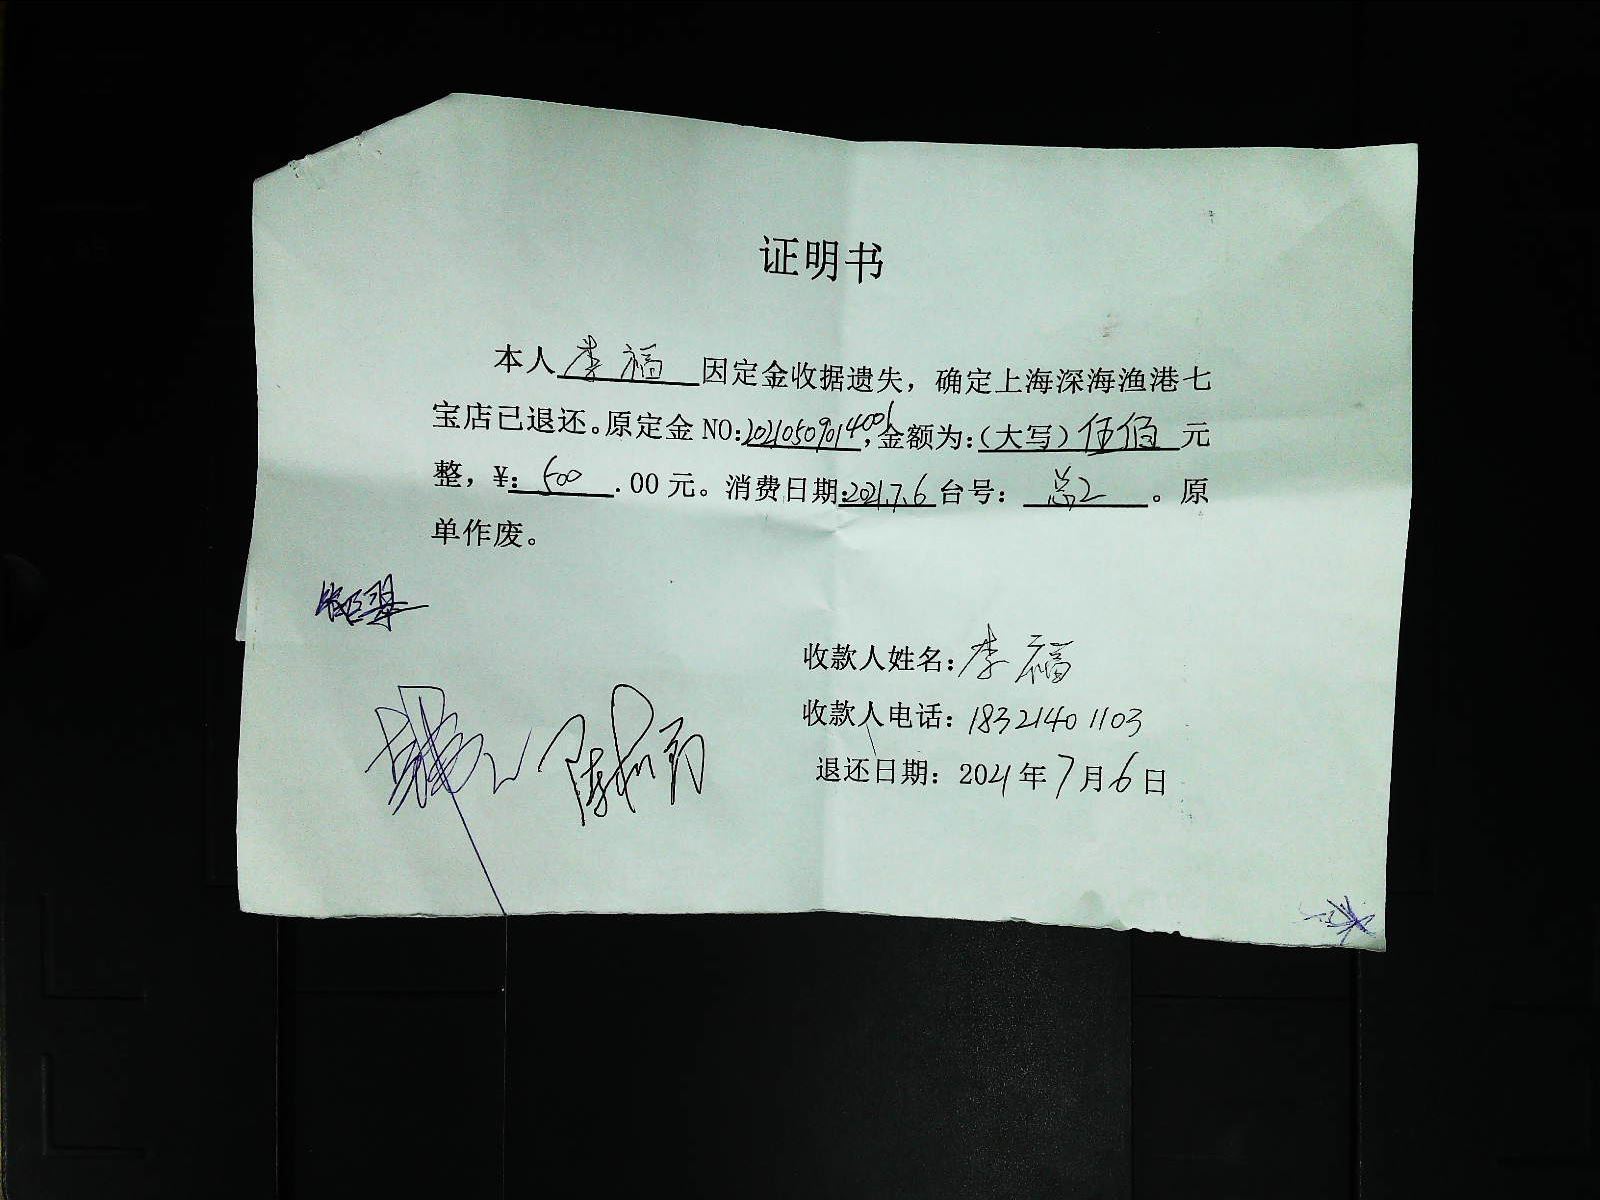 证明书
本人李福因定金收据遗失，确定上海深海渔港七
宝店已退还。原定金NO:20210509014001，金额为:（大写）伍佰元
整，¥:500.00元。消费日期:2021.7.6台号：总2。原
单作废。
收款人姓名:李福
收款人电话：18321401103
退还日期：2021年7月6日